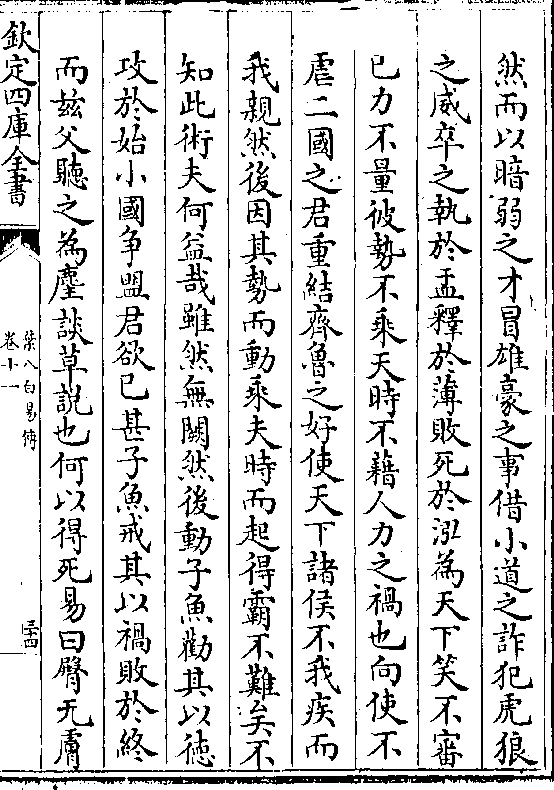 然而以暗弱之才冒雄豪之事借小道之詐犯虎狼
之威卒之執於盂釋於薄敗死於泓為天下笑不審
已力不量彼勢不乘天時不藉人力之禍也向使不
虐二國之君重結齊魯之好使天下諸侯不我疾而
我親然後因其勢而動乘夫時而起得霸不難矣不
知此術夫何益哉雖然無闕然後動子魚勸其以徳
攻於始小國争盟君欲已甚子魚戒其以禍敗於終
而兹父聽之為塵談草說也何以得死易曰臀无膚
欽定四庫全書
葉八白易傳
卷十一
三十四